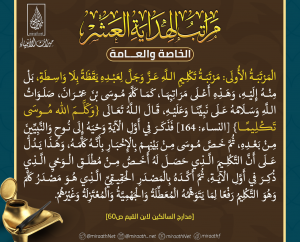 مراتب الهداية العشر
الخاصة والعـــامة
ميراث الأنبياء
المَرْتَبَةُ الأُولَى: مَرْتَبَةُ تَكْلِيمِ اللهِ عَزَّ وَجَلَّ لِعَبْدِهِ يَقَظَةً بِلَا وَاسِطَةٍ، بَلْ
مِنْهُ إِلَيْهِ، وَهَذِهِ أَعْلَى مَرَاتِبِهَا، كَمَا كَلَّمَ مُوسَى بْنَ عِمْرَانَ، صَلَوَاتُ
اللهِ وَسَلَامُهُ عَلَى نَبِيِّنَا وَعَلَيْهِ، قَالَ اللهُ تَعَالَى {وَكَلَّمَ الله مُوسَى
تَكْلِيمًا} [النساء: 164] فَذَكَرَ فِي أَوَّلِ الْآيَةِ وَحْيَهُ إِلَى نُوحٍ وَالنَّبِيِّينَ
مِنْ بَعْدِهِ، ثُمَّ خَصَّ مُوسَى مِنْ بَيْنِهِمْ بِالْإِخْبَارِ بِأَنَّهُ كَلَّمَهُ، وَهَذَا يَدُلُّ
عَلَى أَنَّ التَّكْلِيمَ الَّذِي حَصَلَ لَهُ أَخَصُّ مِنْ مُطْلَقِ الْوَحْيِ الَّذِي
ذُكِرَ فِي أَوَّلِ الْآيَةِ، ثُمَّ أَكَّدَهُ بِالْمَصْدَرِ الْحَقِيقِيِّ الَّذِي هُوَ مَصْدَرُ كَلَّمَ
وَهُوَ التَّكْلِيمُ رَفْعًا لِمَا يَتَوَهَّمُهُ الْمُعَطِّلَةُ وَالْجَهْمِيَّةُ وَالْمُعْتَزِلَةُ وَغَيْرُهُمْ.
[مدارج السالكين لابن القيم ص60]
@miraathnet @miraathNet @miraathf